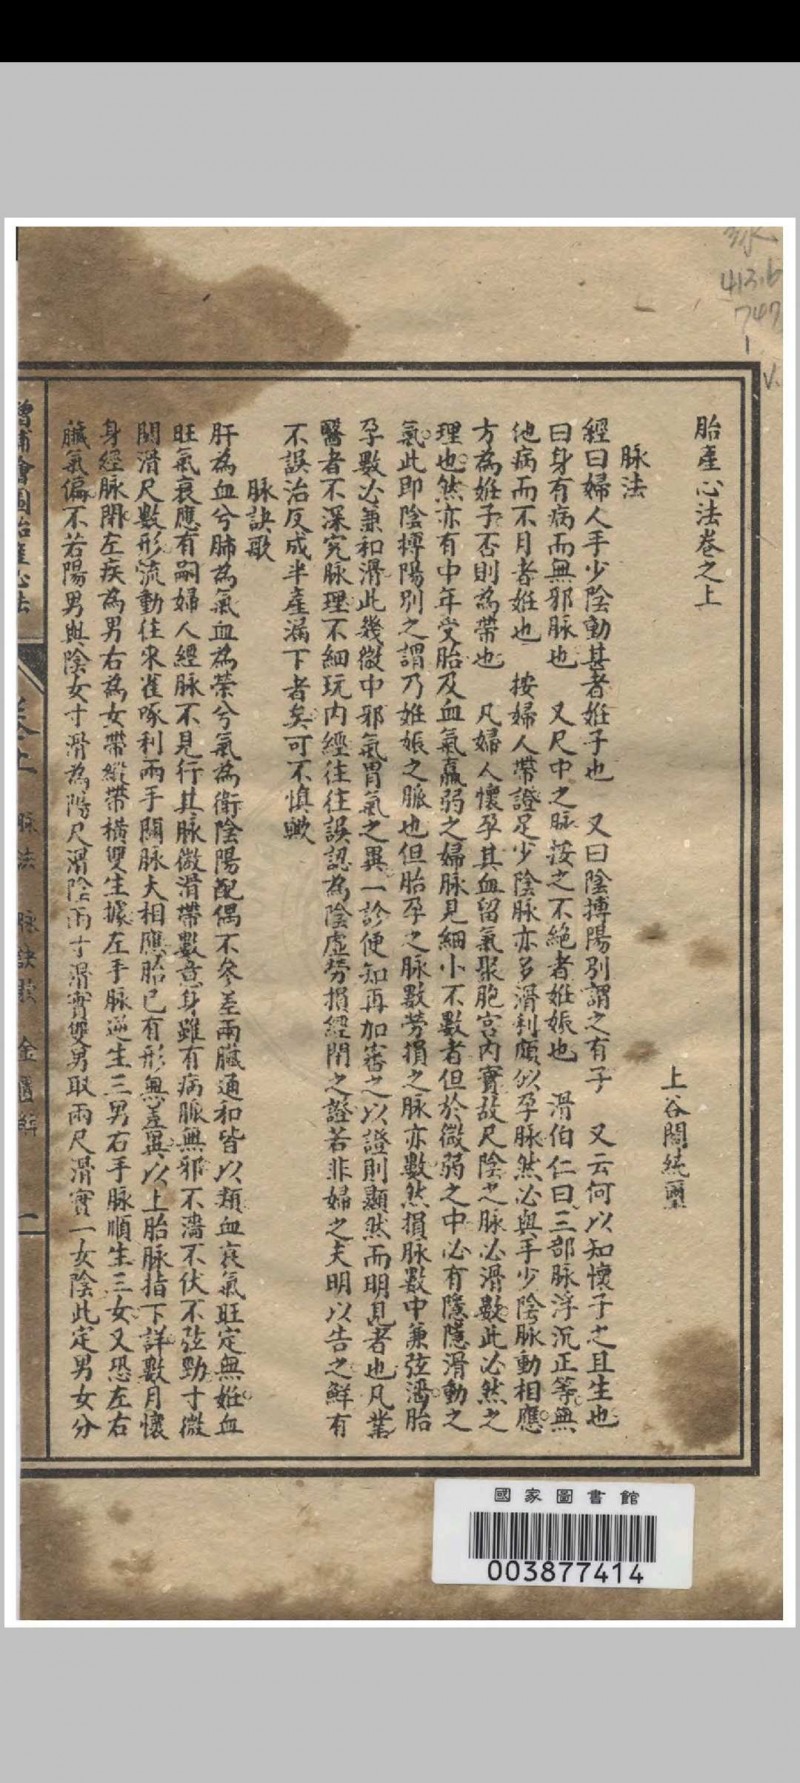 胎產心法卷之上
上谷閻純璽
脈法
經曰婦人手少陰動甚者姙子也　又曰陰搏陽別謂之有子　又云何以知懷子之且生也
曰身有病而無邪脉也　又尺中之脉按之不絶者姙娠也　滑伯仁曰三部脉浮沉正等無
他病而不月者姙也　按婦人帶證足少陰脉亦多滑利頗似孕脉然必與手少陰脉動相應
方為姙子否則為帶也　凡婦人懷孕其血留氣聚胞宮內實故尺陰之脉必滑數此必然之
理也然亦有中年受胎及血氣羸弱之婦脉見細小不數者但於微弱之中必有隱隱滑動之
氣此即陰搏陽別之謂乃姙娠之脈也但胎孕之脉數勞損之脉亦數然損脉數中兼弦濇胎
孕數必兼和滑此幾微中邪氣胃氣之異一診便知再加審之以證則顯然而明見者也凡業
醫者不深究脉理不細玩內經往往誤認為陰虛勞損經閉之證若非婦之夫明以告之鮮有
不誤治反成半產漏下者矣可不慎歟
脈訣歌
肝為血兮肺為氣血為榮兮氣為衛陰陽配偶不參差兩臟通和皆以類血衰氣旺定無姙血
旺氣衰應有嗣婦人經脉不見行其脉微滑帶數息身雖有病脈無邪不濇不伏不弦勁寸微
關滑尺數形流動往來雀啄利兩手關脉大相應胎已有形無差異以上胎脉指下詳數月懷
身經脉閉左疾為男右為女帶縱帶橫雙生據左手脉逆生三男右手脉順生三女又恐左右
臟氣偏不若陽男與陰女寸滑為陽尺滑陰兩寸滑實雙男取兩尺滑實一女陰此定男女分
增補繪圖胎產心法　卷上　脉法　脉訣歌　金匱　一
413.6
747
1
V.
國家圖書館
003877414